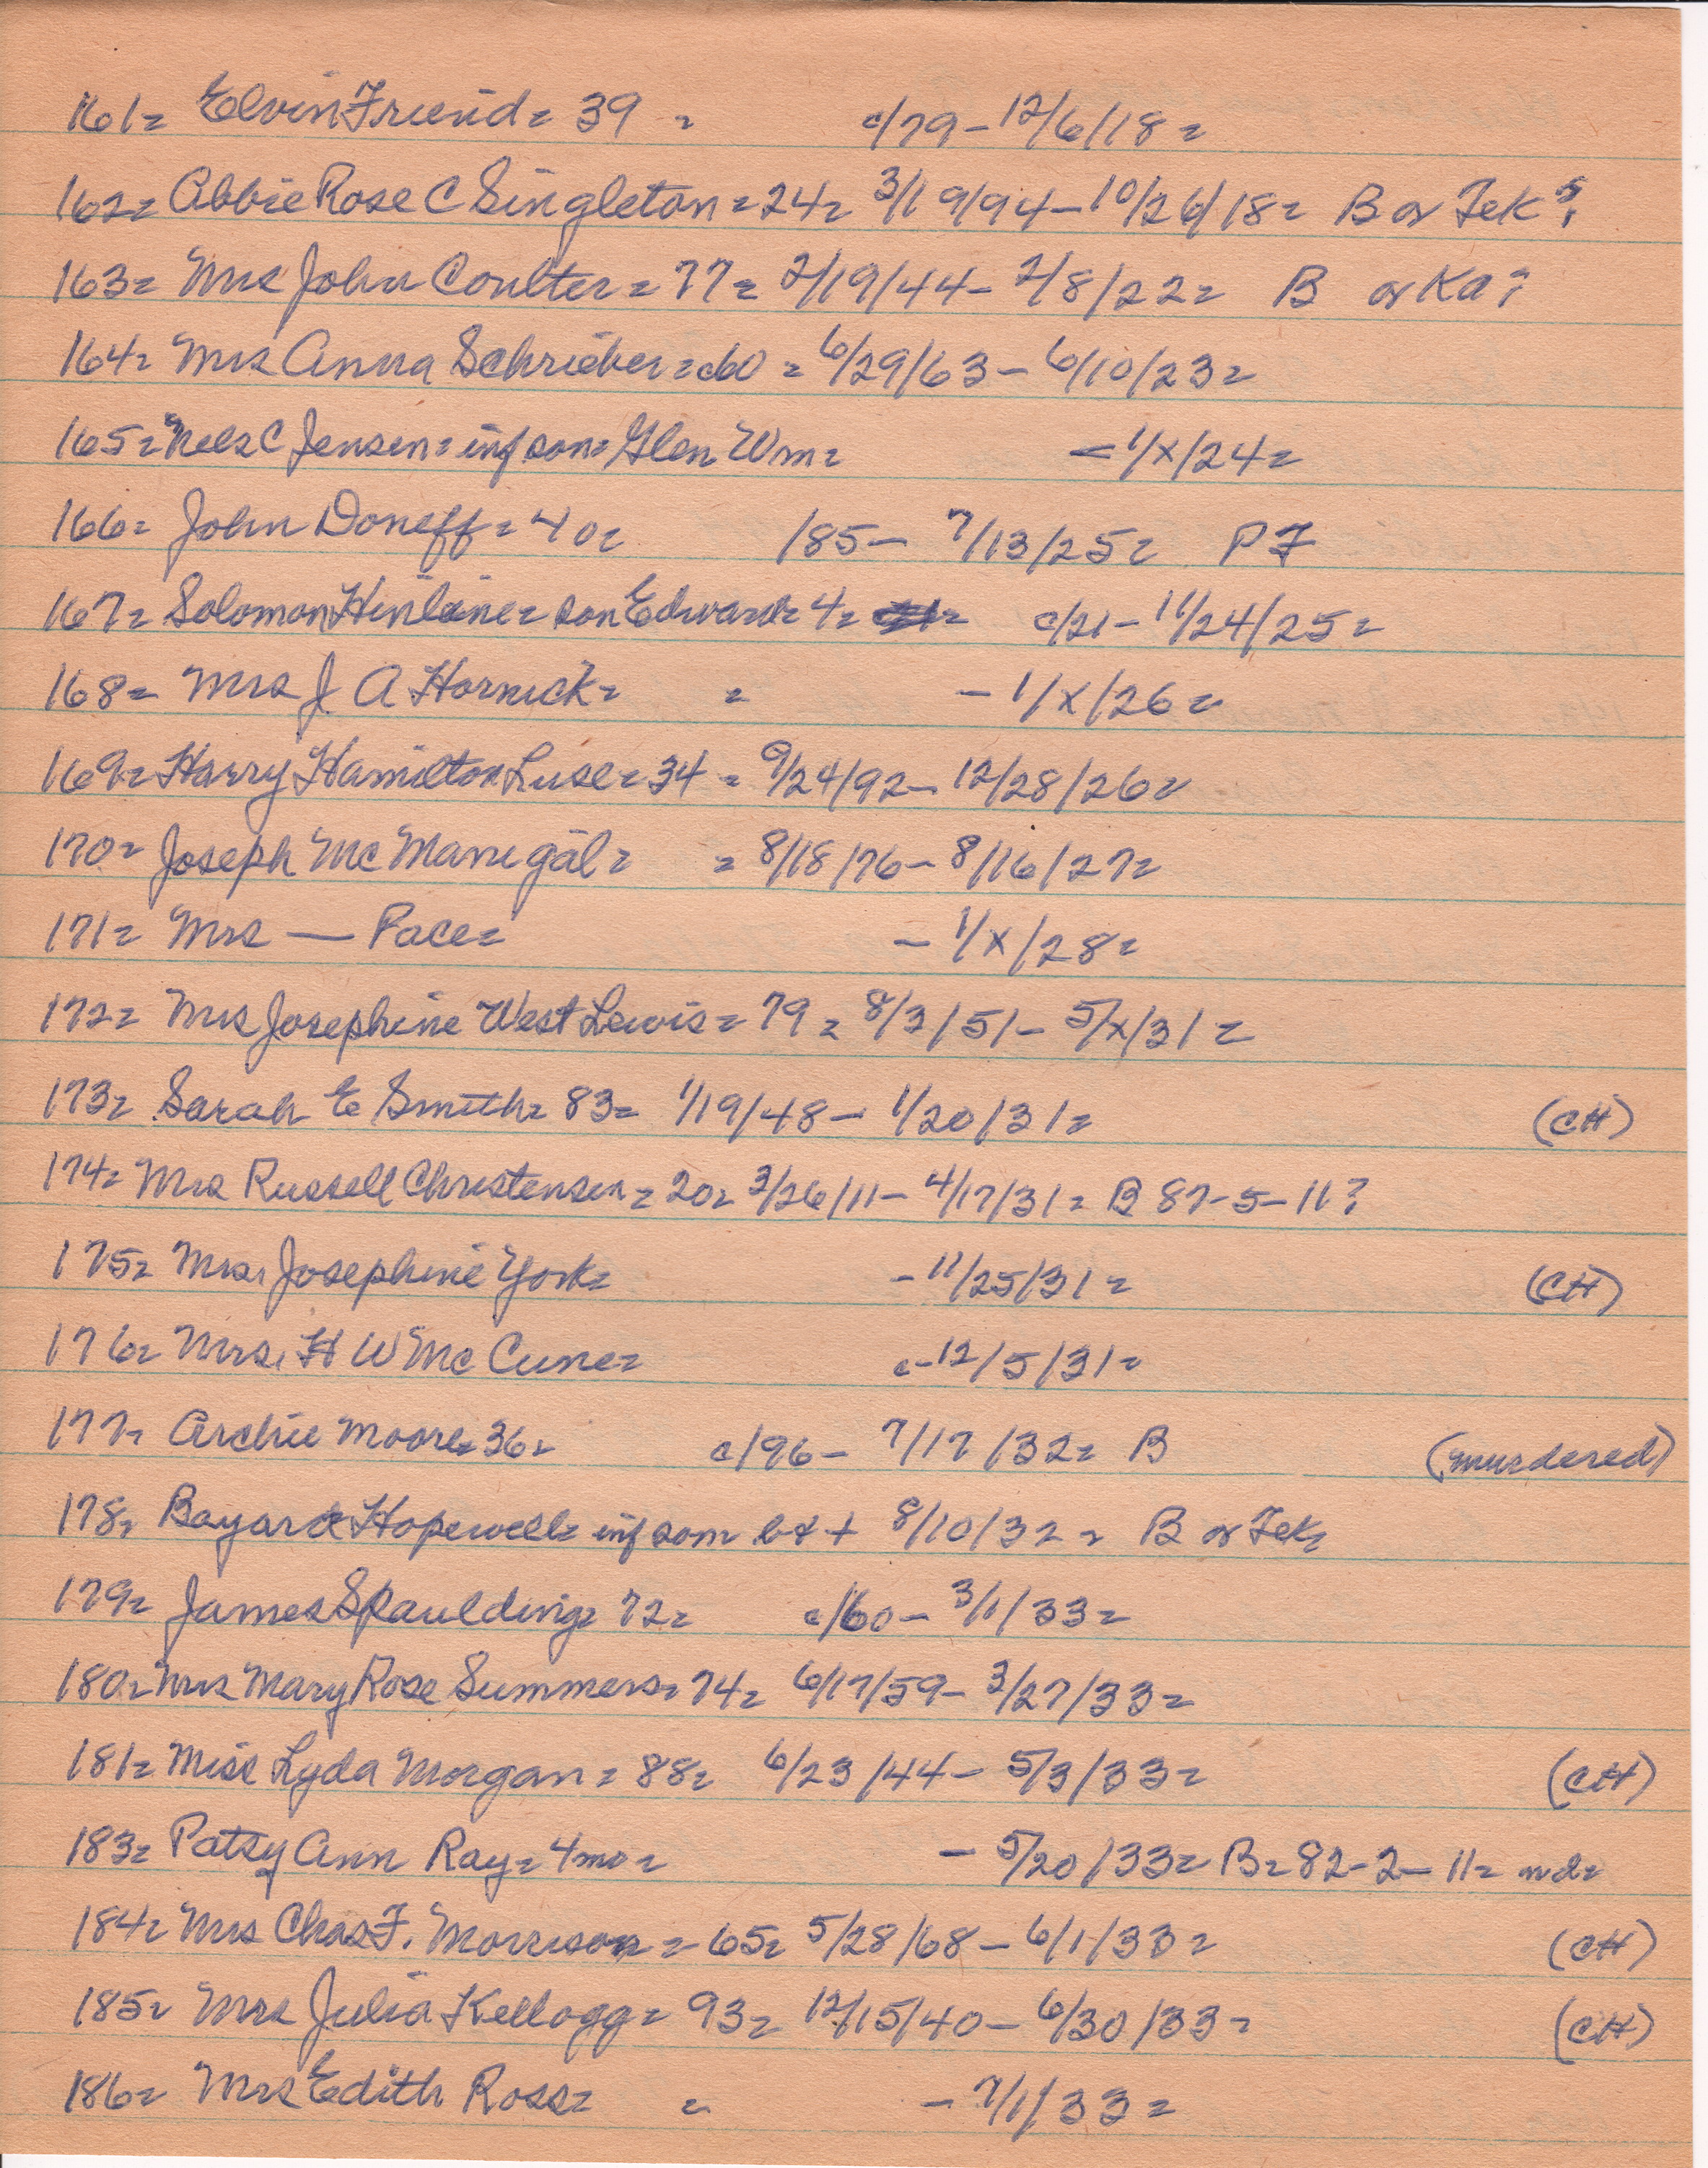 161= Elvin Friend= 39 = c/79-12/6/18=
162= Abbie Rose C Singleton=24= 3/19/94-10/26/18= B or Tek?
163= Mrs John Coulter=77= 2/19/44-2/8/22= B or Ka?
164= Mrs Anna Schrieber=c60 = 6/29/63-6/10/23=
165= Nels C Jensen= inf son= Glen Wm= =1/x/24=
166= John Doneff=40= /85- 7/13/25= PF
167= Solomon Hinlaine= son Edward= 4= c/21-11/24/25=
168= Mrs J. A Hornick= = -1/x/26=
169= Harry Hamilton Luse=34 = 9/24/92-12/28/26=
170= Joseph McManigal= = 8/18/76-8/16/27=
171= Mrs — Pace= -1/x/28=
172= Mrs Josephine West Lewis=79= 8/3/51-5/x/31=
173= Sarah E Smith= 83= 1/19/48-1/20/31= (CH)
174= Mrs Russell Christensen=20= 3/26/11-4/17/31= B 87-5-11?
175= Mrs. Josephine York= -11/25/31= (CH)
176= Mrs. H W McCune= c-12/5/31=
177= Archie Moore=36= c/96- 7/17/32= B (murdered)
178= Bayard Hopewell= inf son b&+ 8/10/32= B or Tek=
179= James Spaulding= 72= c/60-3/1/33=
180= Mrs Mary Rose Summers= 74= 6/17/59-3/27/33=
181= Miss Lyda Morgan= 88= 6/23/44-5/3/33= (CH)
183= Patsy Ann Ray=4mo= -5/20/33= B=82-2-11= nd=
184= Mrs Chas F. Morrison=65= 5/28/68-6/1/33= (CH)
185= Mrs Julia Kellogg= 93= 12/15/40-6/30/33= (CH)
186= Mrs Edith Ross= = -7/1/33=